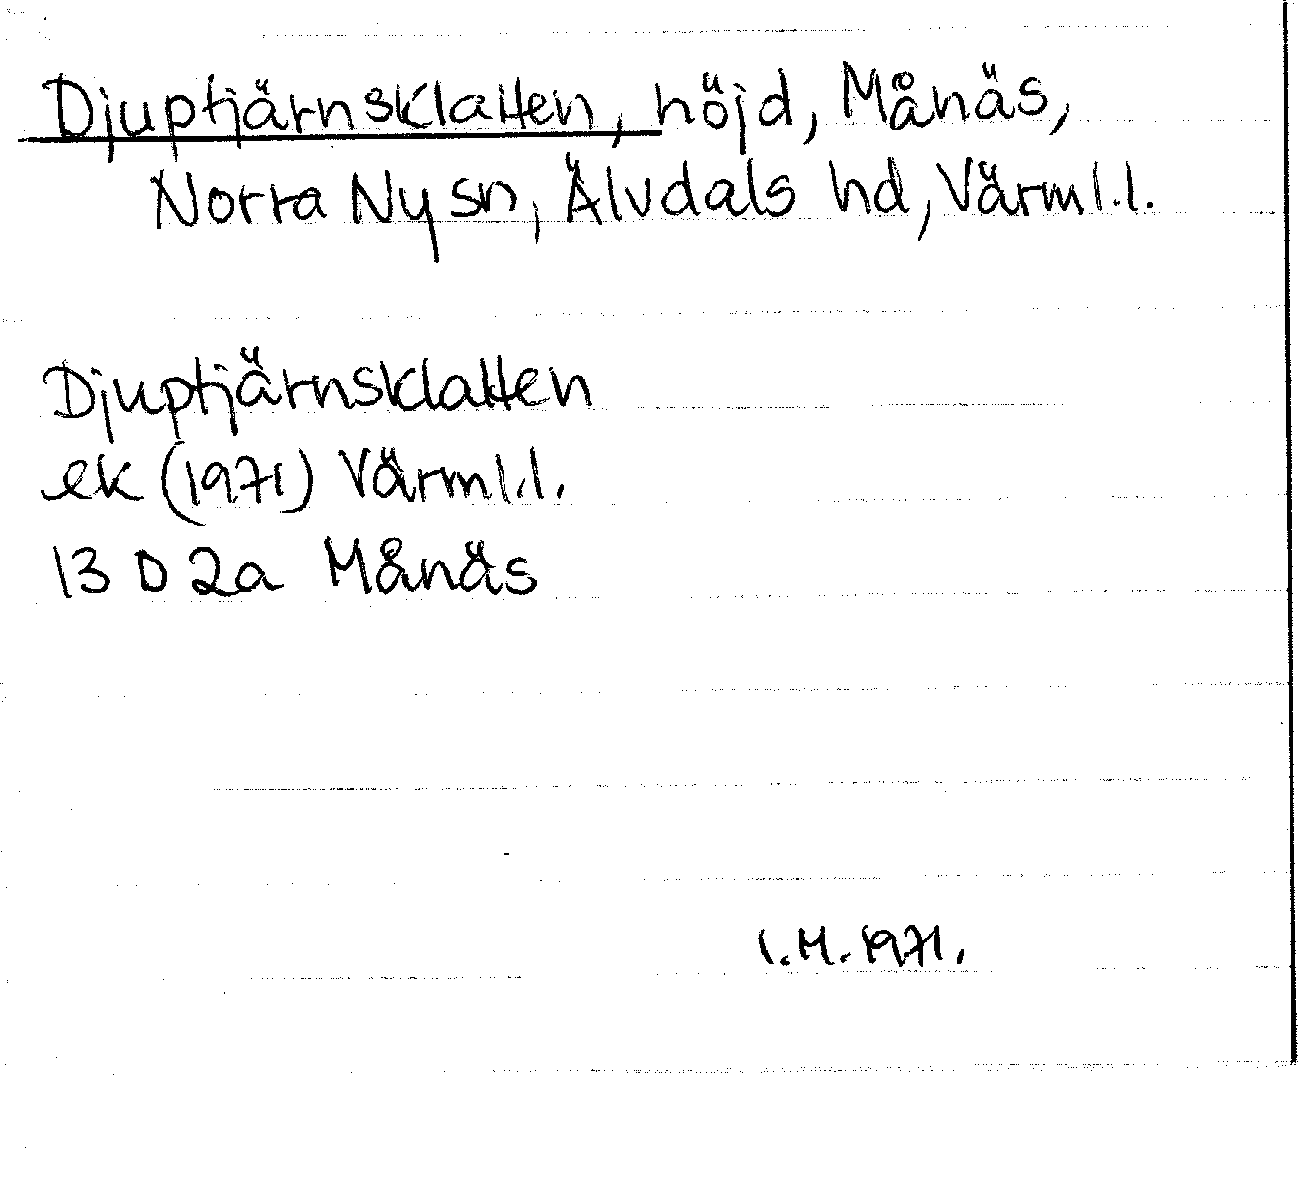 Djuptjärnsklatten, höjd, Månäs,
Norra Ny sn, Älvdals hd, Värml.l.
Djuptjärnsklatten
ek (1971) Värml.l.
13 D 2a Månäs
I.M. 1971.